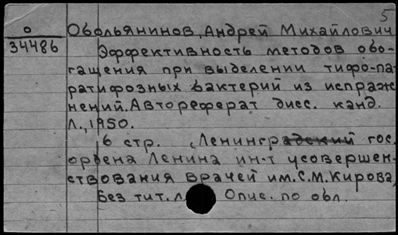 5
О
34486
Обольянинов, Андрей Михайлович
Эффективность методов обо-
гащения при выделении тифо-па-
ратифозных бактерий из испраж-
нений. Автореферат дисс. канд.
Л., 1950.
6 стр. (Ленинградский гос.
ордена Ленина ин-т усовершен-
ствования врачей им. С.М. Кирова,
Без тит. л. Опис. по обл.